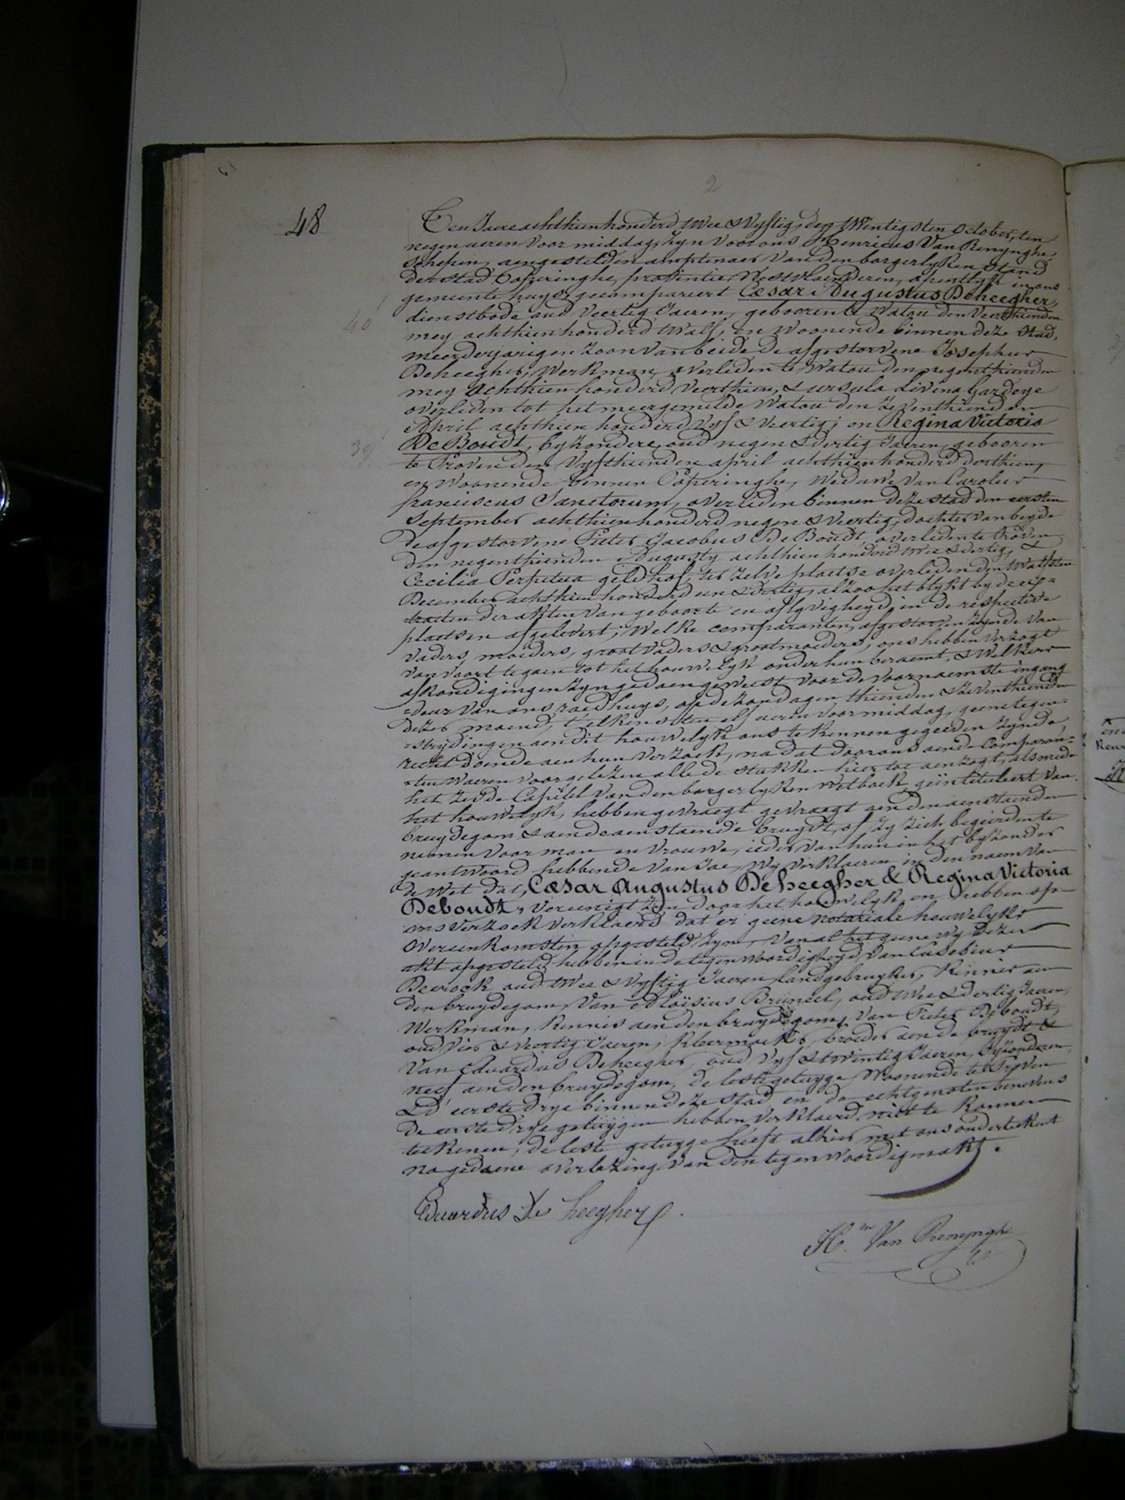 2
48
Ten Jaere achthienhonderd twee & vyftig, den twintigsten October, ten
negen ueren voor middag, zyn voor ons Henricus Van Renynghe,
Schepen, aengestelden amptenaer van den borgerlyken stand
der stad Poperinghe, provintie Westvlaenderen, openlyk in ons
gemeente huys gecompareert Cæsar Augustus Deheegher,
40
dienstbode oud veertig Jaeren, gebooren te Watou den veerthienden
mey achthienhonderd twalf, en woonende binnen deze stad,
meerderjarigen zoon van beide de afgestorvene Josephus
Deheegher, werkman, overleden te Watou den negenthienden
mey achthien honderd veerthien, & ursula Livina
overleden tot het meergemelde Watou den zeventhienden
April achthien honderd vyf & veertig; en Regina Victoria
39
De Boudt, byzondere, oud negen & dertig Jaeren, gebooren
te Proven den vyfthienden april achthienhonderd derthien,
en woonende binnen Poperinghe, weduwe van Carolus
franciscus Sanctorum, overleden binnen deze stad den eersten
September achthienhonderd negen & veertig, dochter van beyde
de afgestorvene Pieter Jacobus De Boudt overleden te Proven
den negenthienden Augusty achthienhonderd twee & dertig, &
Cecilia Perpetua geldhof, ter zelve plaetse overleden den twalfsten
December achthien honderd een & dertig, alzoo het blykt by de ex-
tracten der akten van geboorte en aflyvigheyd in de respective
plaetsen afgelevert; Welke comparanten, afgestorven zynde van
vaders, moeders, grootvaders & grootmoeders, ons hebben verzogt
van voort te gaen tot het houwelyk onder hun beraemt, & welkers
afkondigingen zyn gedaen geweest voor de voornaemste ingang
deur van ons raedhuys, op de zondagen thienden & zeventhienden
dezer maend, telkens ten elf ueren voormiddag, geene tegen-
strydingen aen dit houwelyk ons te kennen gegeeven zynde,
recht doende aen hun verzoek, na dat door ons aen de comparan-
ten waeren voorgelezen alle de stukken hier toe aenzogt, alsmede
het zesde Capittel van den borgerlyken wetboek geïntituleert van
het houwelyk, hebben gevraegt gevraegt aen den aenstaenden
bruydegom & aen de aenstaende bruydt, of zy zich begeirden te
nemen voor man en vrouwe, ieder van hun in het byzonder
geantwoord hebbende van Jae, Wy verklaeren, in den naem van
de Wet dat, Cæsar Augustus Deheegher & Regina Victoria
Deboudt, vereenigt zyn door het houwelyk, en hebben op
ons verzoek verklaerd dat er geene notariale houwelyks
overeenkomsten opgesteld zyn, Van al het geene wy dezen
akt opgesteld hebben in de tegenwoordigheyd, van
oud twee & vyftig Jaeren, landgebruyker, kennis aen
den bruydegom, van Aloïsius Bruneel, oud twee & dertig Jaeren,
Werkman, kennis aen den bruydegom, van Pieter Deboudt,
oud vier & veertig Jaeren, kleermaeker, broeder aen de bruydt &
van Eduardus Deheegher oud vyf & twintig Jaeren, byzonderen,
neef aen den bruydegom, de leste getuyge woonende te Proven
& d' eerste drye binnen deze stad en de echtgenoten benevens
de eerste drye getuygen hebben verklaerd niet te konnen
teekenen, de leste getuyge heeft alhier met ons onderteekent
na gedaene overlezing van den tegenwoordigen akt.
Eduardus De heegher
H.en Van Renynghe